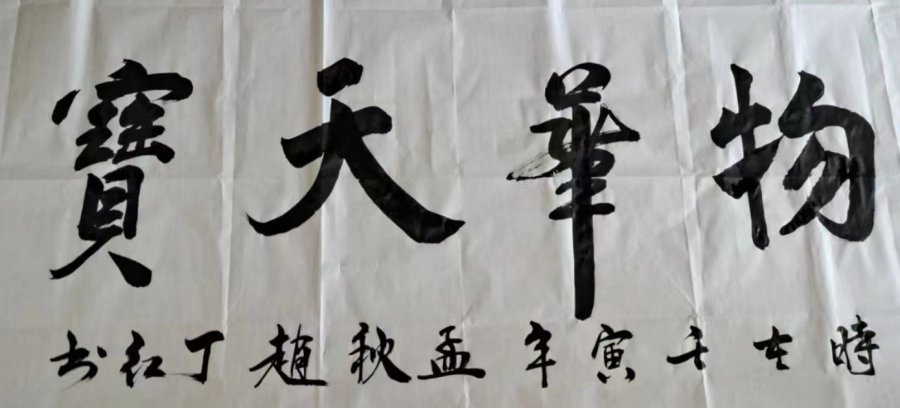 物華天寶
時在壬寅年孟秋趙丁紅书